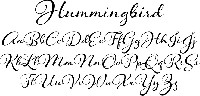 Hummingbird
Aa Bb Cc Dd Ee Ff Gg Hh Ii Jj
Kk Ll Mm Nn Oo Pp Qq Rr Ss
Tt Uu Vv Ww Xx Yy Zz